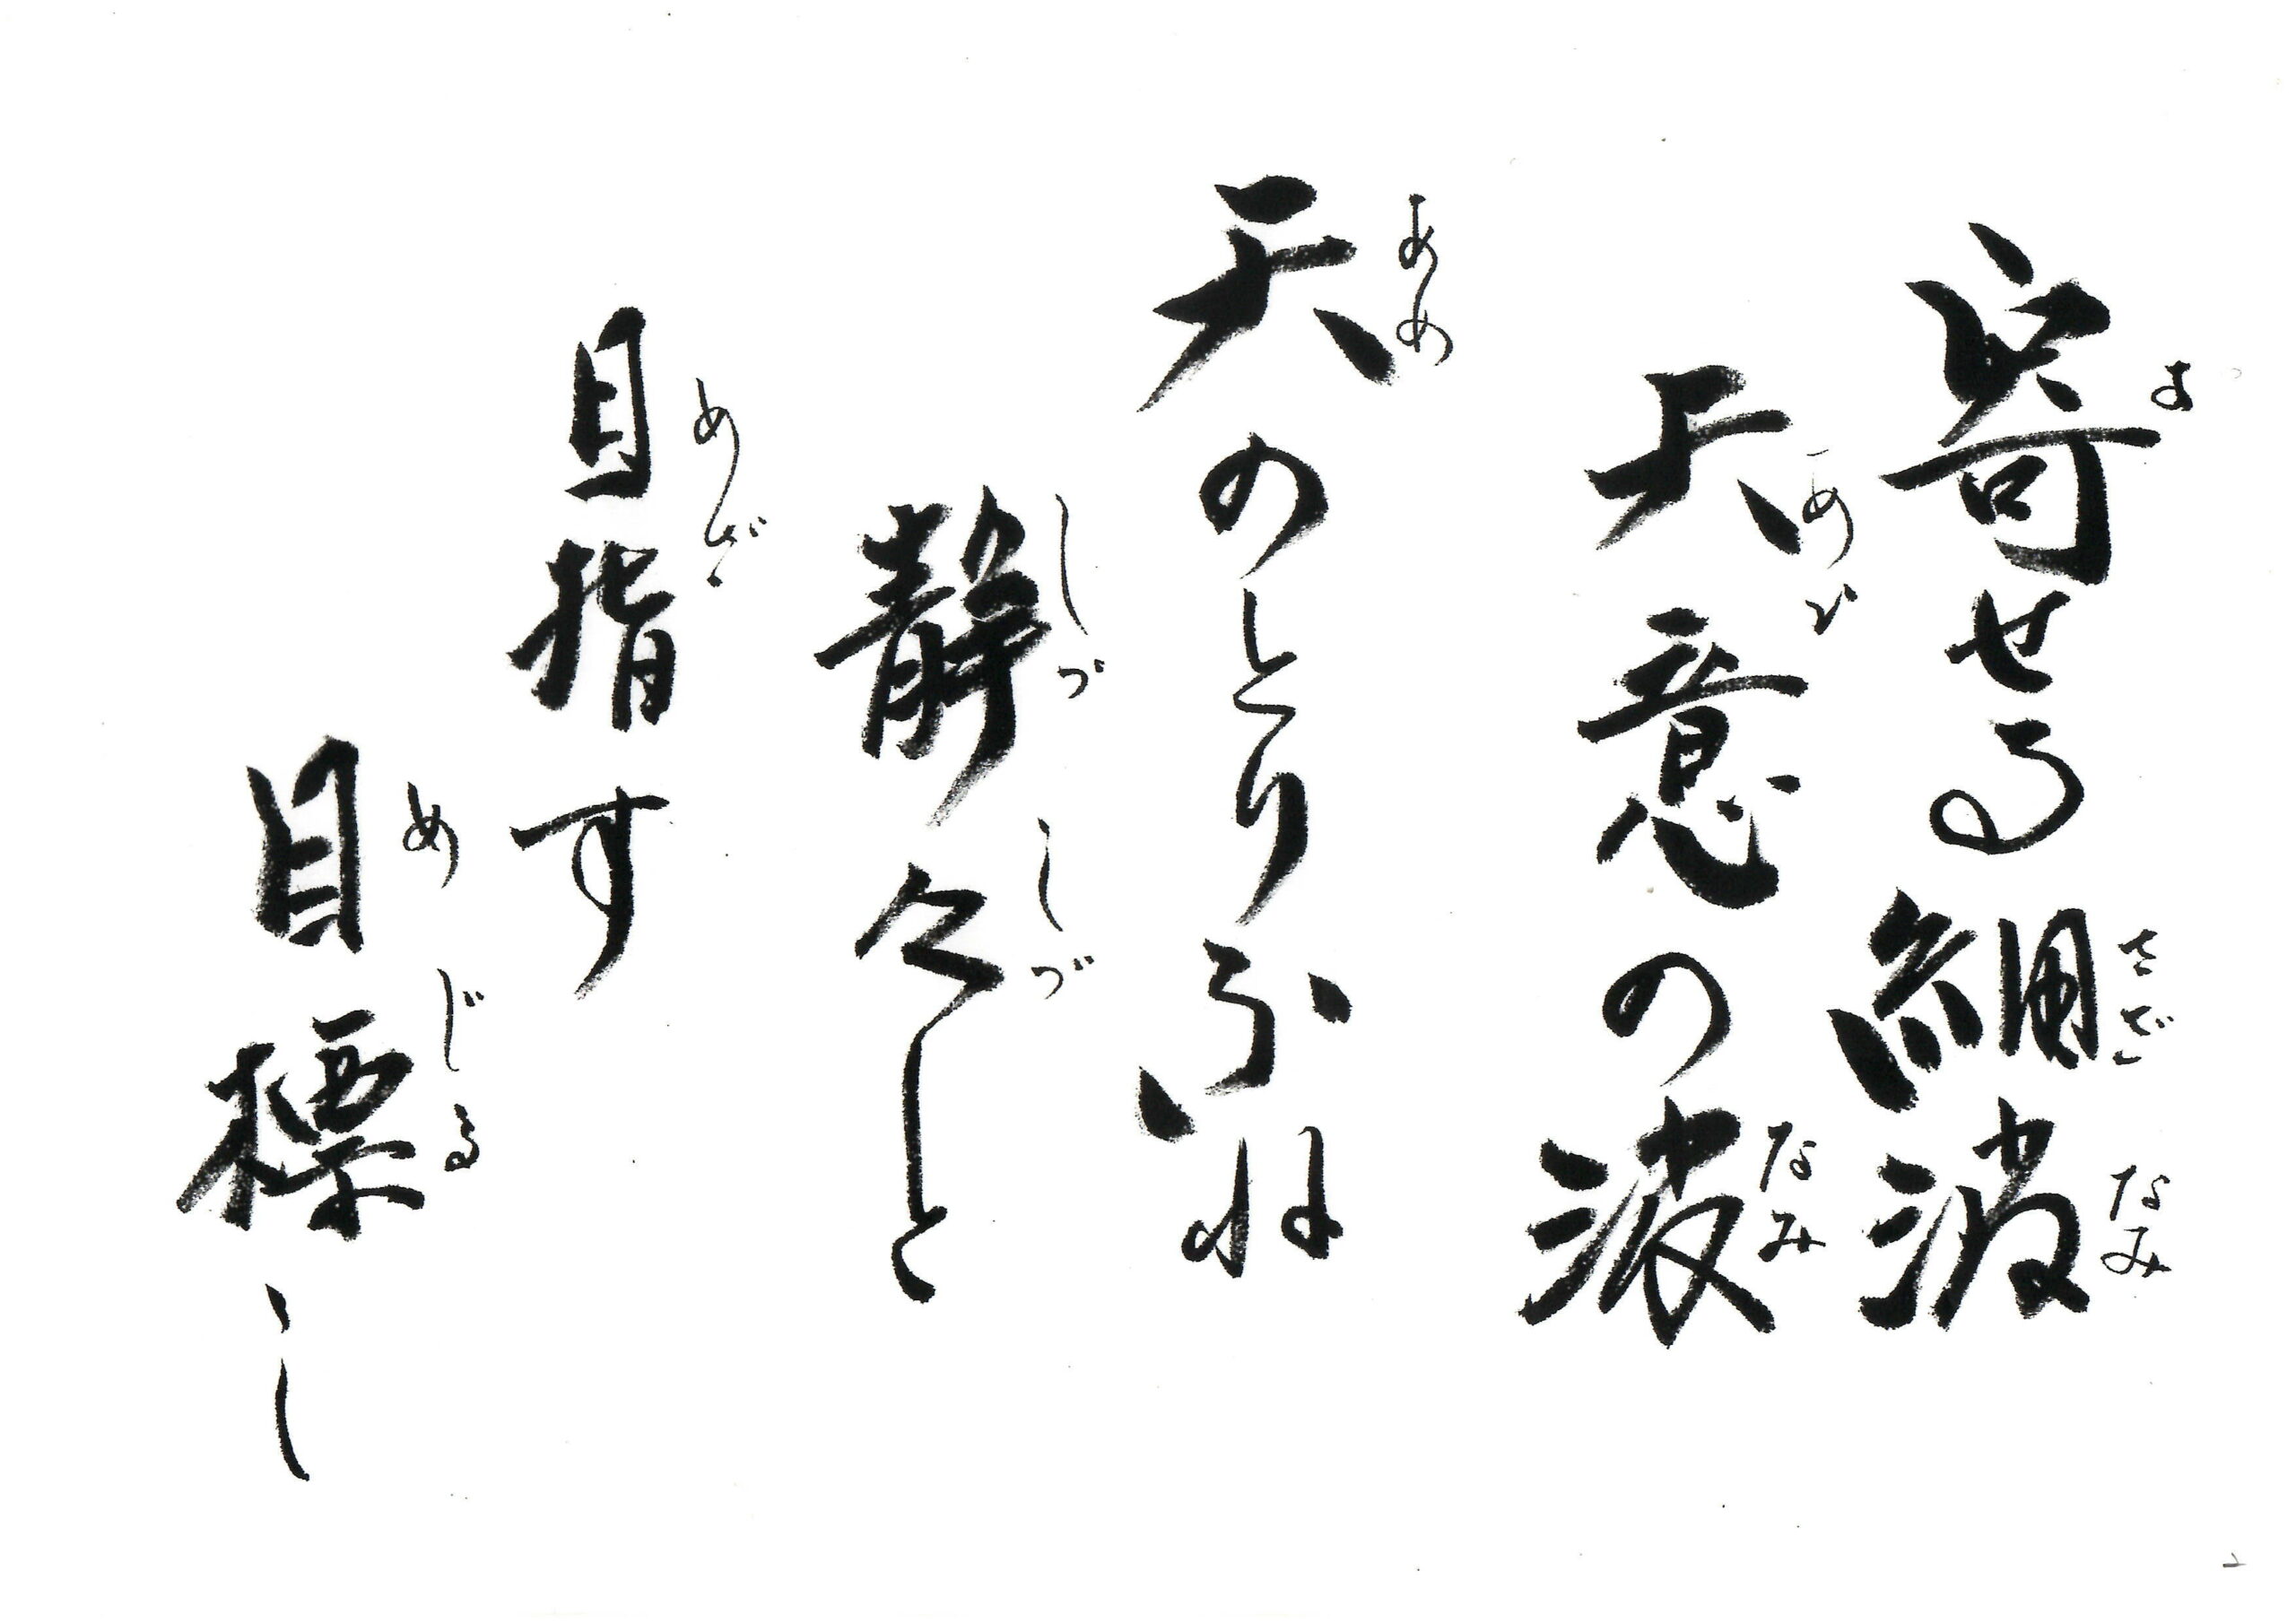 寄せる細波
よ さざなみ
天意の波
なみ
天のとりふね
あめ
静々と
しづしづ
目指す
めざ
目標し
めじる